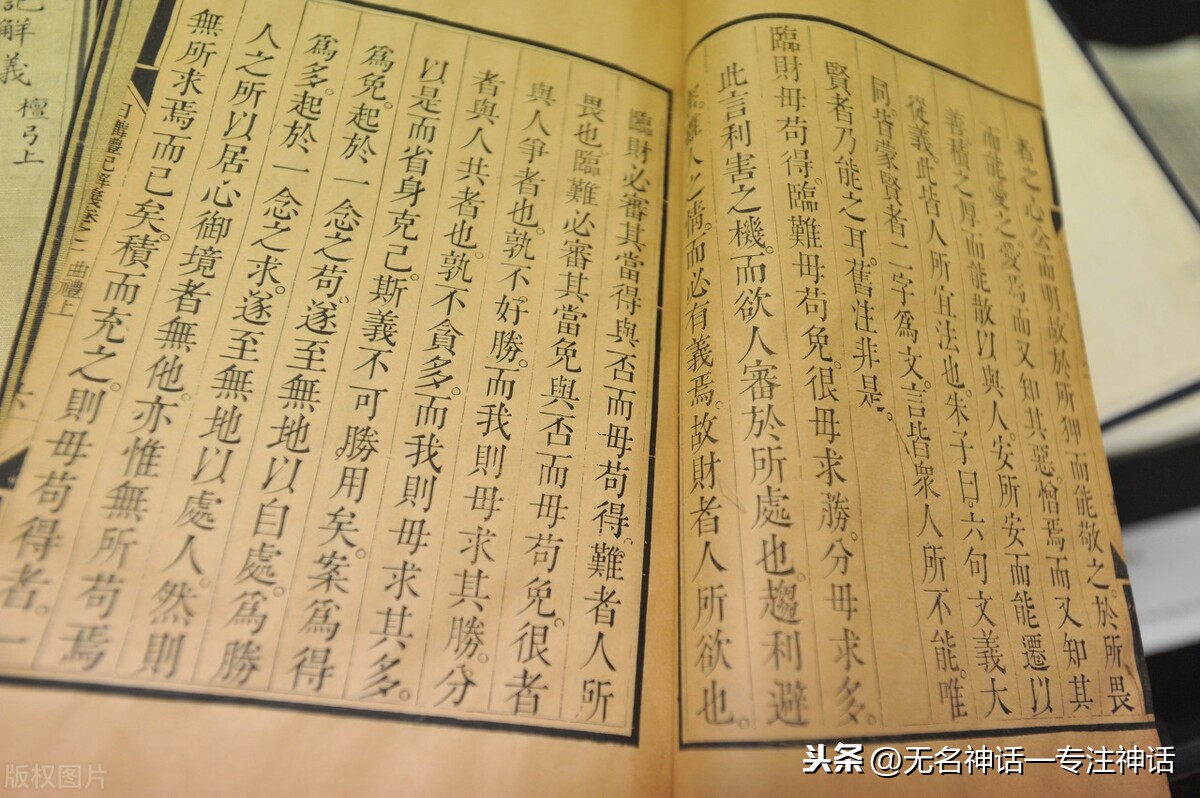 者之心公而明故於所狎而能敬之。於所畏
而能愛之愛焉而又知其惡。憎焉而又知其
善積之厚而能散以與人。安所安而能遷以
從義此皆人所宜法也。朱子曰。六句文義大
同。皆蒙賢者二字爲文。言皆衆人所不能。唯
賢者乃能之耳。舊注非是。
臨財毋苟得。臨難毋苟免。很毋求勝。分毋求多。
此言利害之機。而欲人審於所處也。趨利避
人之情。而必有義焉。故財者人所欲也。
臨財必審其當得與否而毋苟得。難者人所
畏也。臨難必審其當免與否而毋苟免。很者
與人爭者也。孰不好勝。而我則毋求其勝。分
者與人共者也。孰不貪多。而我則毋求其多。
以是而省身克己。斯義不可勝用矣。案爲得
爲免。起於一念之苟。遂至無地以自處。爲勝
爲多。起於一念之求。遂至無地以處人。然則
人之所以居心御境者無他。亦惟無所苟焉
無所求焉而已矣。積而充之。則毋苟得者。一
日講禮記解義 曲禮上
記解義 檀弓上
版权图片
头条 @无名神话一专注神话